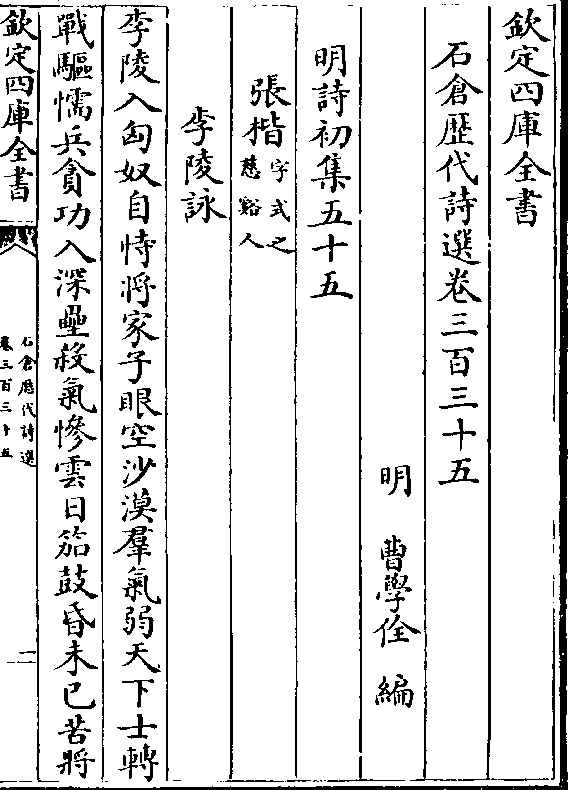 欽定四庫全書
石倉歴代詩選卷三百三十五
明　曹學佺　編
明詩初集五十五
張楷字式之
慈谿人
李陵詠
李陵入匈奴自恃將家子眼空沙漠羣氣弱天下士轉
戰驅懦兵貪功入深壘殺氣慘雲日笳鼓昏未已苦將
欽定四庫全書
石倉歷代詩選
卷三百三十五
一